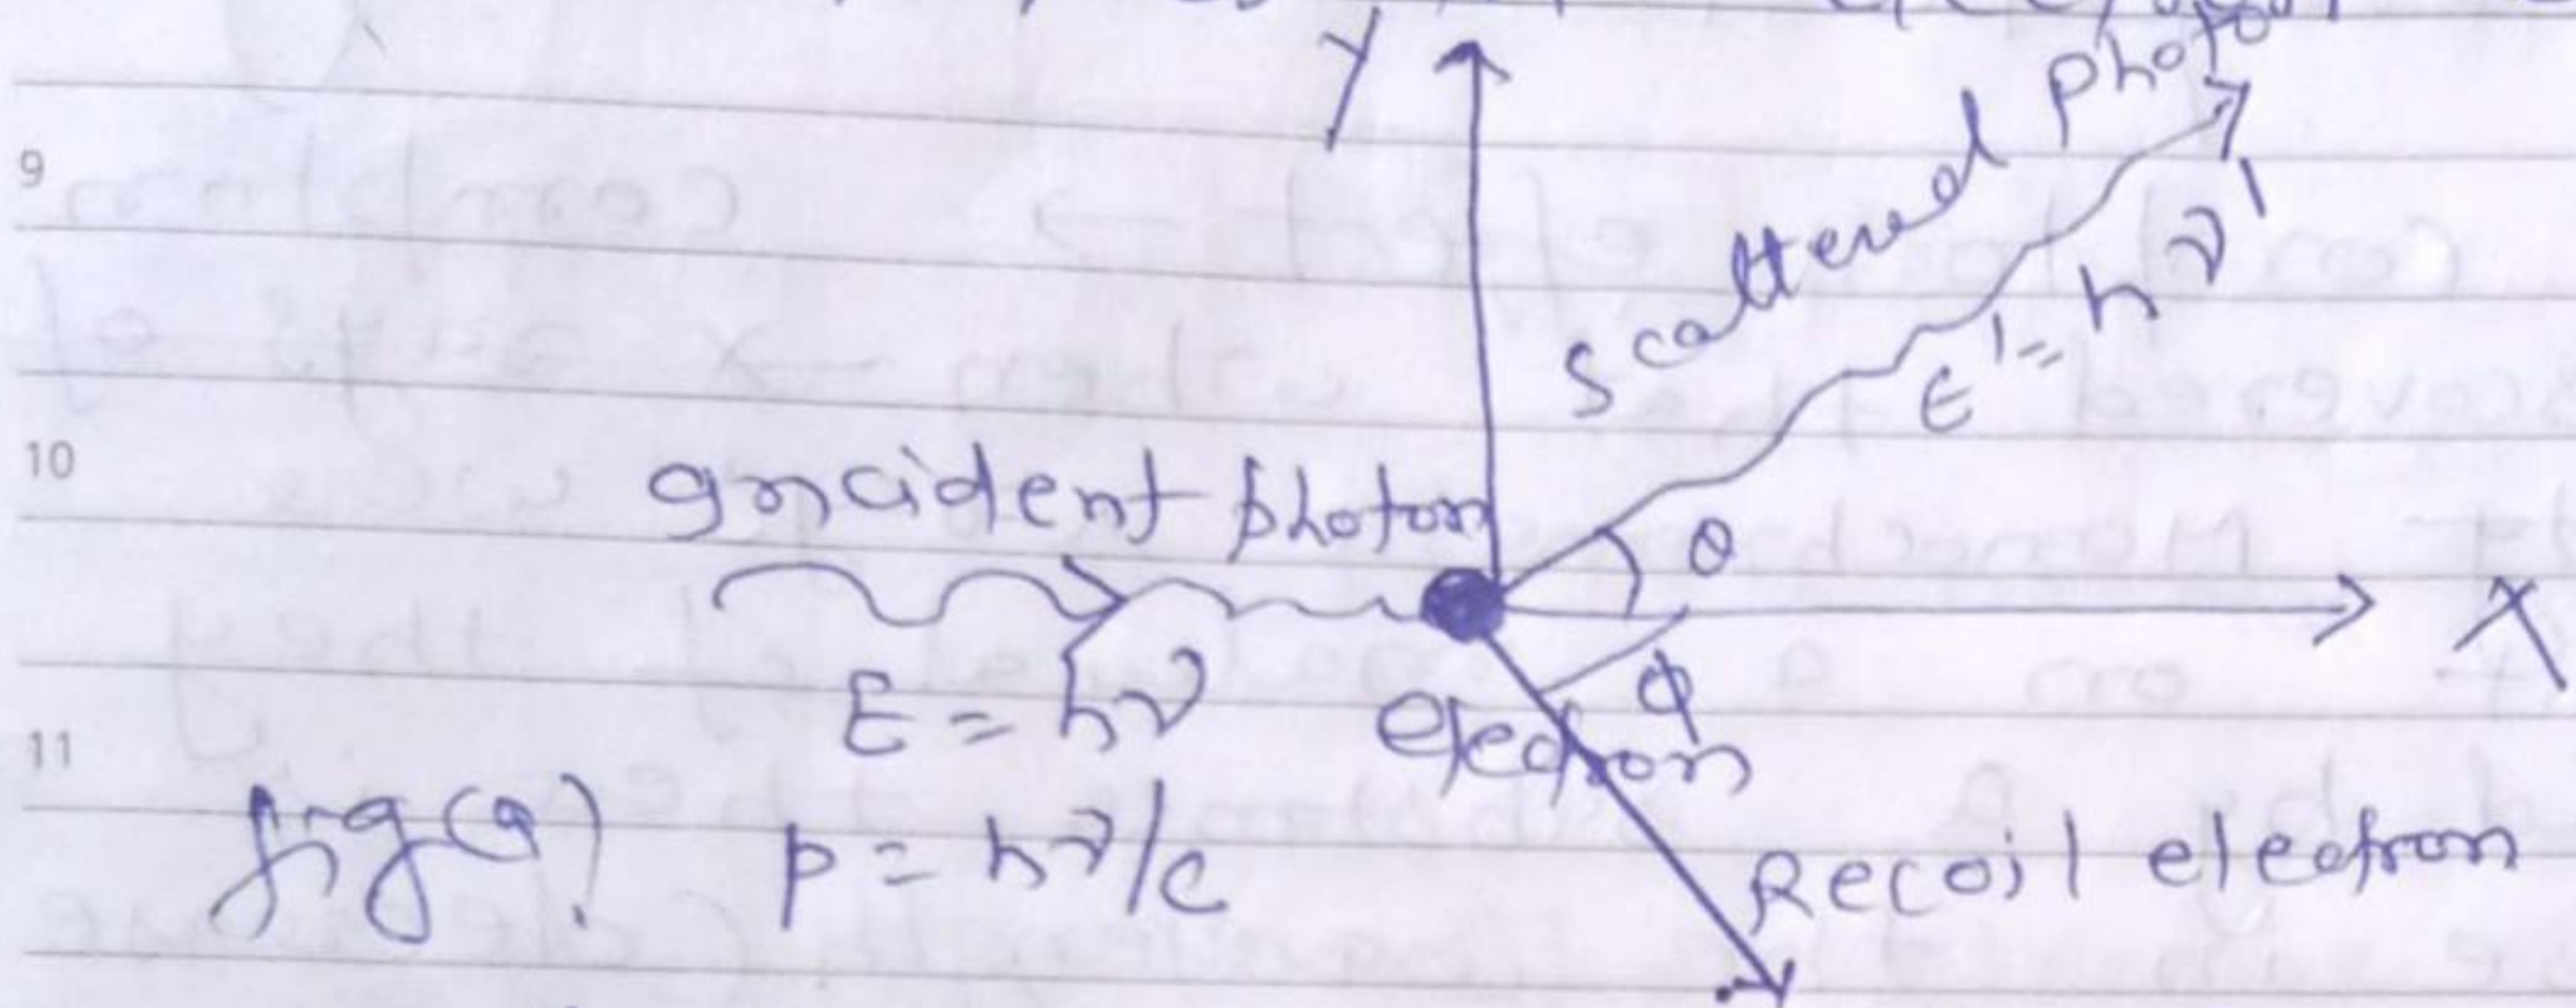 Y
Scattered photon
9
E' = hν'
10
Incident photon
θ
X
E = hν
electron
ϕ
11
fig(a)
p = hν/c
Recoil electron